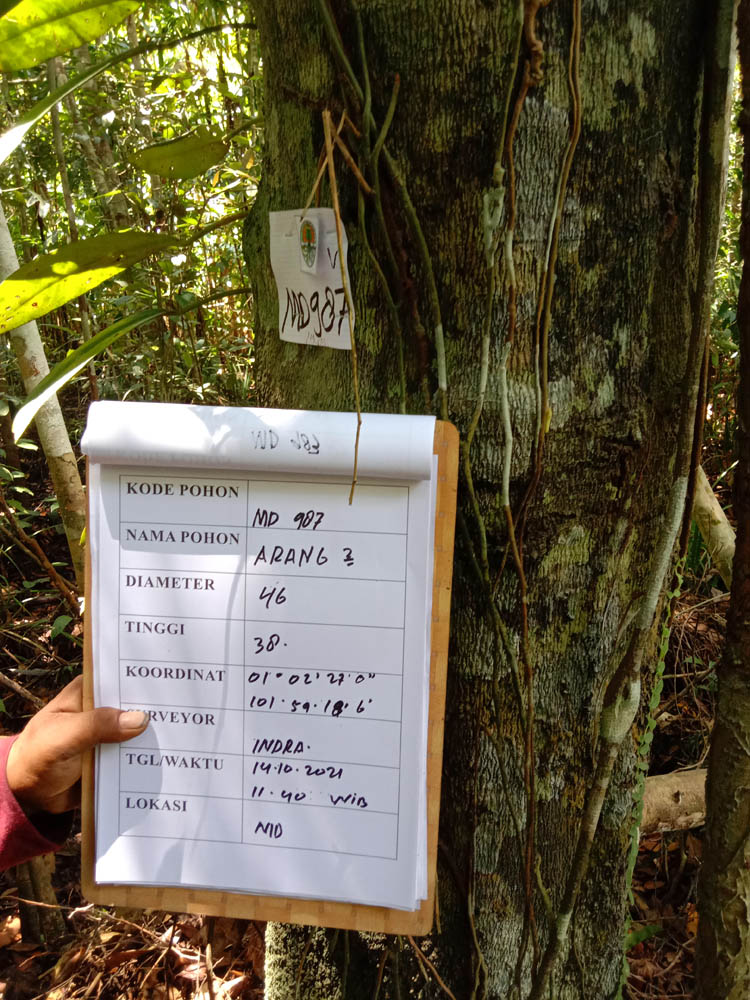 MD 987
KODE POHON
MD 987
NAMA POHON
ARANG 3
DIAMETER
46
TINGGI
38.
KOORDINAT
01° 02' 27.0"
101.59.18.6'
SURVEYOR
INDRA.
TGL/WAKTU
14.10.2021
11.40 WIB
LOKASI
MD